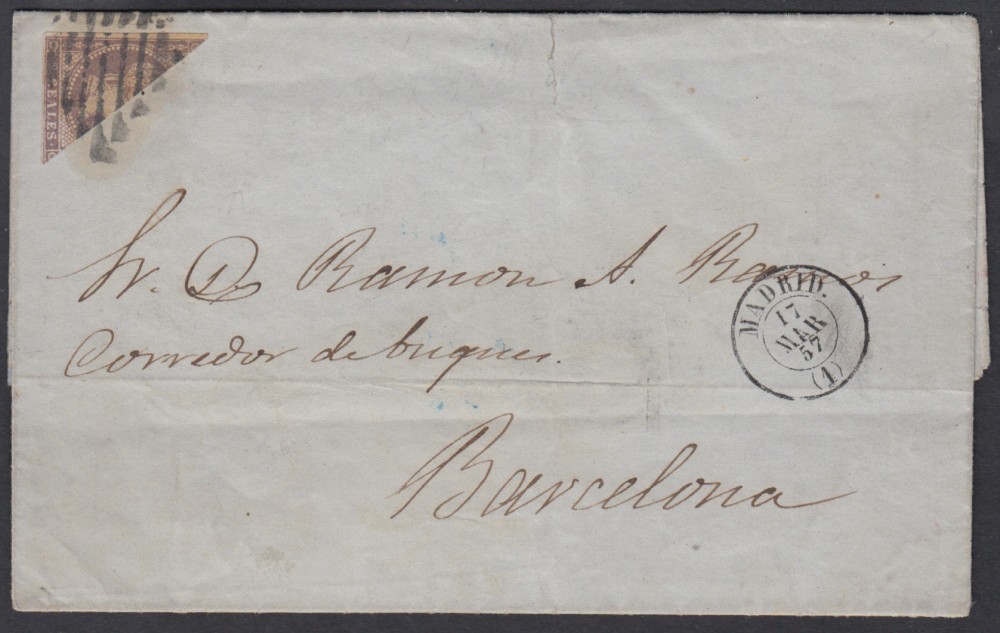 EALES.
Sr. D. Ramon A. Ramos
Corredor de buques.
MADRID.
17
MAR
57
(1)
Barcelona